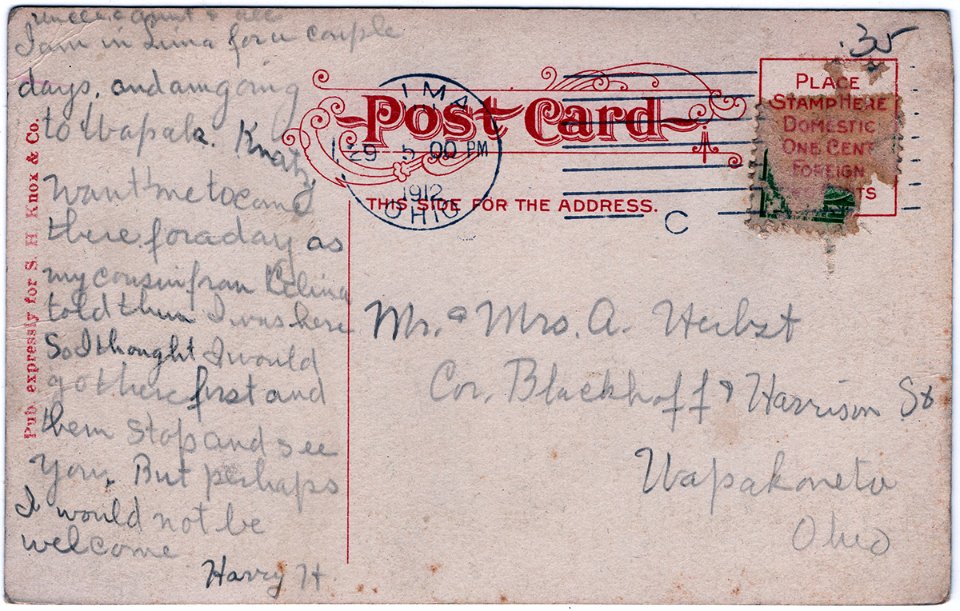 uncle & aunt & all
I am in Lima for a couple
days, and am going
to Wapak. Knatz
want me to come
there for a day as
my cousin from Celina
told them I was here
So I thought I would
go there first and
them stop and see
you. But perhaps
I would not be
welcome
Harry H.
Pub. expressly for S. H. Knox & Co.
Post Card
THIS SIDE FOR THE ADDRESS.
LIMA
29 5 00 PM
1912
OHIO
C
.35
PLACE
STAMP HERE
DOMESTIC
ONE CENT
FOREIGN
TS
Mr. & Mrs. A. Herbst
Cor. Blackhoff & Harrison St
Wapakoneta
Ohio